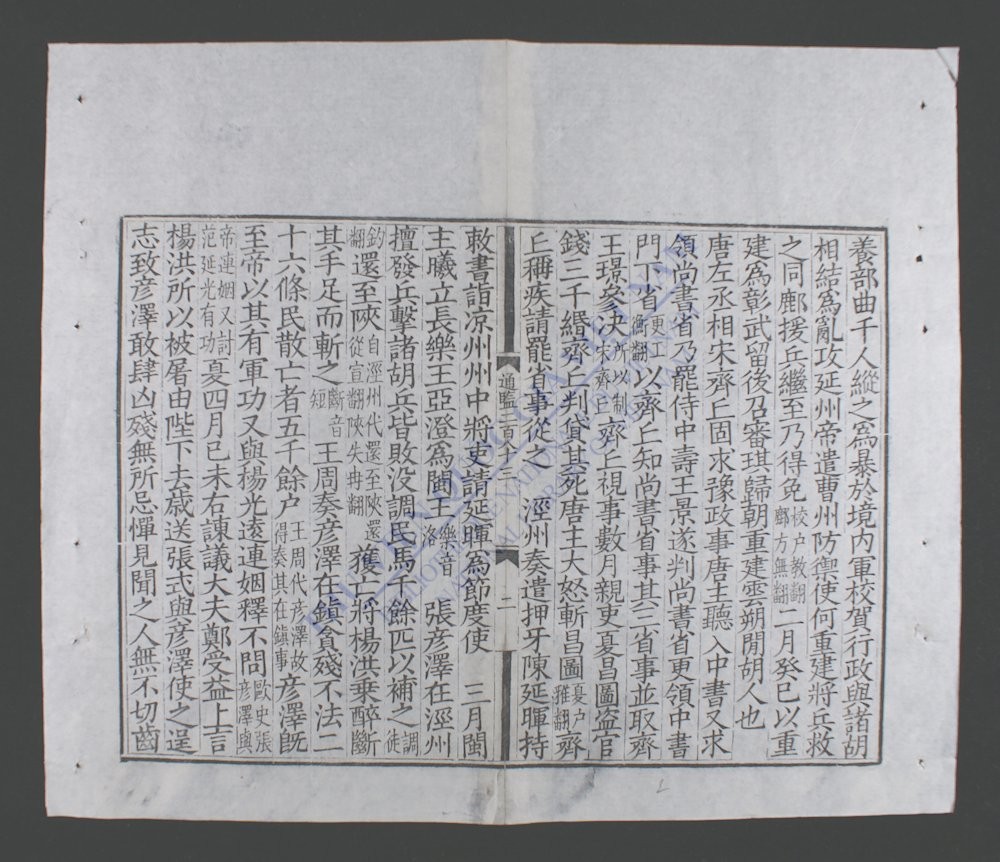 養部曲千人縱之爲暴於境內軍校賀行政與諸胡
相結爲亂攻延州帝遣曹州防禦使何重建將兵救
之同鄜援兵繼至乃得免校户教翻鄜方無翻二月癸巳以重
建爲彰武留後召審琪歸朝重建雲朔閒胡人也
唐左丞相宋齊丘固求豫政事唐主聽入中書又求
領尚書省乃罷侍中壽王景遂判尚書省更領中書
門下省更工衡翻以齊丘知尚書省事其三省事並取齊
王璟參决所以制宋齊丘齊丘視事數月親吏夏昌圖盜官
錢三千緡齊丘判貸其死唐主大怒斬昌圖夏户雅翻齊
丘稱疾請罷省事從之 涇州奏遣押牙陳延暉持
通監二百八十三 二
敕書詣凉州州中將吏請延暉爲節度使 三月閩
主曦立長樂王亞澄爲閩王樂音洛 張彦澤在涇州
擅發兵擊諸胡兵皆敗没調民馬千餘匹以補之調徒
釣翻還至陜自涇州代還至陜還從宣翻陜失冉翻獲亡將楊洪乗醉斷
其手足而斬之斷音短 王周奏彦澤在鎮貪殘不法二
十六條民散亡者五千餘户王周代彦澤故得奏其在鎮事彦澤既
至帝以其有軍功又與楊光遠連姻釋不問歐史張彦澤與
帝連姻又討范延光有功夏四月己未右諫議大夫鄭受益上言
楊洪所以被屠由陛下去歲送張式與彦澤使之逞
志致彦澤敢肆凶殘無所忌憚見聞之人無不切齒